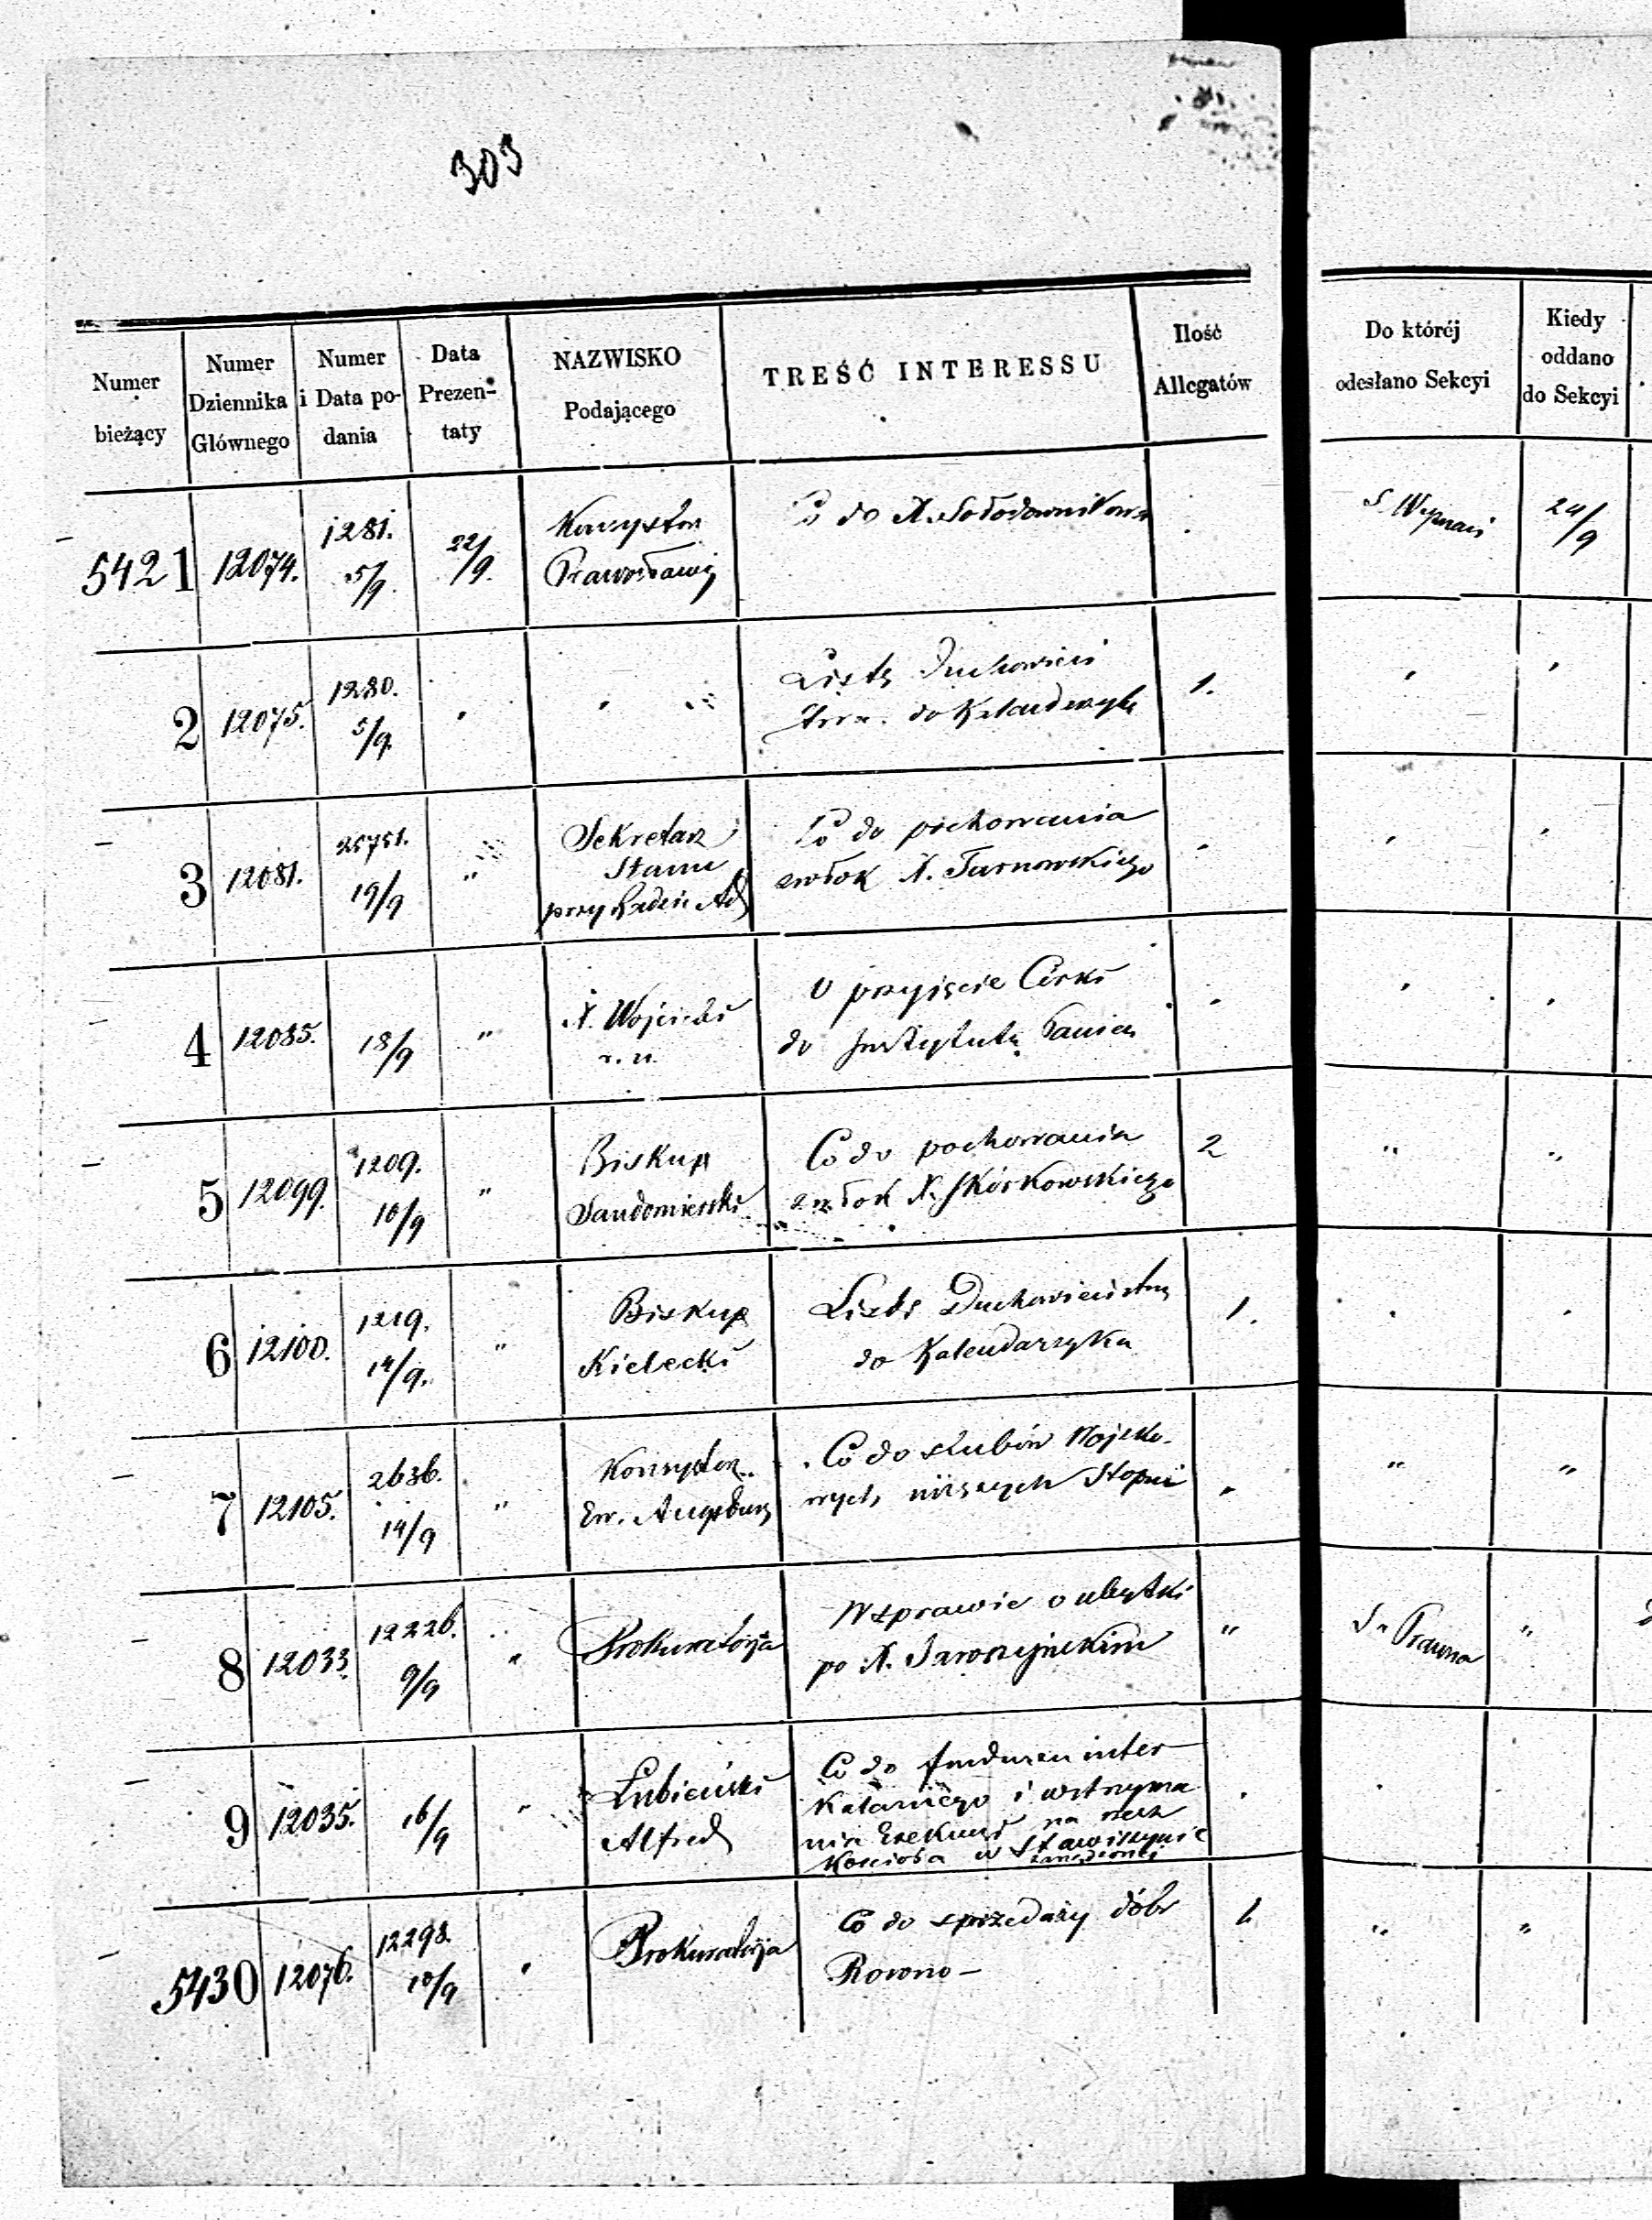 303
Numer bieżący
Numer Dziennika Głównego
Numer i Data podania
Data Prezentaty
NAZWISKO Podającego
TREŚĆ INTERESSU
Ilość Allegatów
Do któréj odesłano Sekcyi
Kiedy oddano do Sekcyi
5421 12074. 1281. 5/9. 22/9. Konsystorz Prawosławny Co do X. Sołodownikowa S. Wyznań 24/9
2 12075. 1280. 5/9. " " " Listy Duchowień
do Kalendarzyka 1. " "
3 12081. 25751. 19/9 " Sekretarz
Stanu
przy Radzie Ad
Co do pochowania
zwłok X. Tarnowskiego " " "
4 12085. 18/9 " X. Wójcicki
r. u.
O przyjęcie Córki
do Instytutu Panien " " "
5 12099. 1209. 10/9 " Biskup
Sandomierski
Co do pochowania
zwłok X. Skórkowskiego 2 " "
6 12100. 1219. 14/9. " Biskup
Kielecki
Listy Duchowieństwa
do Kalendarzyka 1. " "
7 12105. 2636. 14/9 " Konsystorz
Ew. Augsburg
Co do ślubów Wojsko-
wych niższych Stopni " " "
8 12033. 12226. 9/9 " Prokuratorja
W sprawie o ubytki
po X. Jaroszyńskim " S. Prawna "
9 12035. 16/9 " Łubieński
Alfred
Co do funduszu inter
kalarnego i wstrzyma
nia Exekucyi na rzecz
Kościoła w Stawiszynie
zarządzonej
5430 12076. 12298. 10/9 " Prokuratorja
Co do sprzedaży dóbr
Rowno – 1. " "